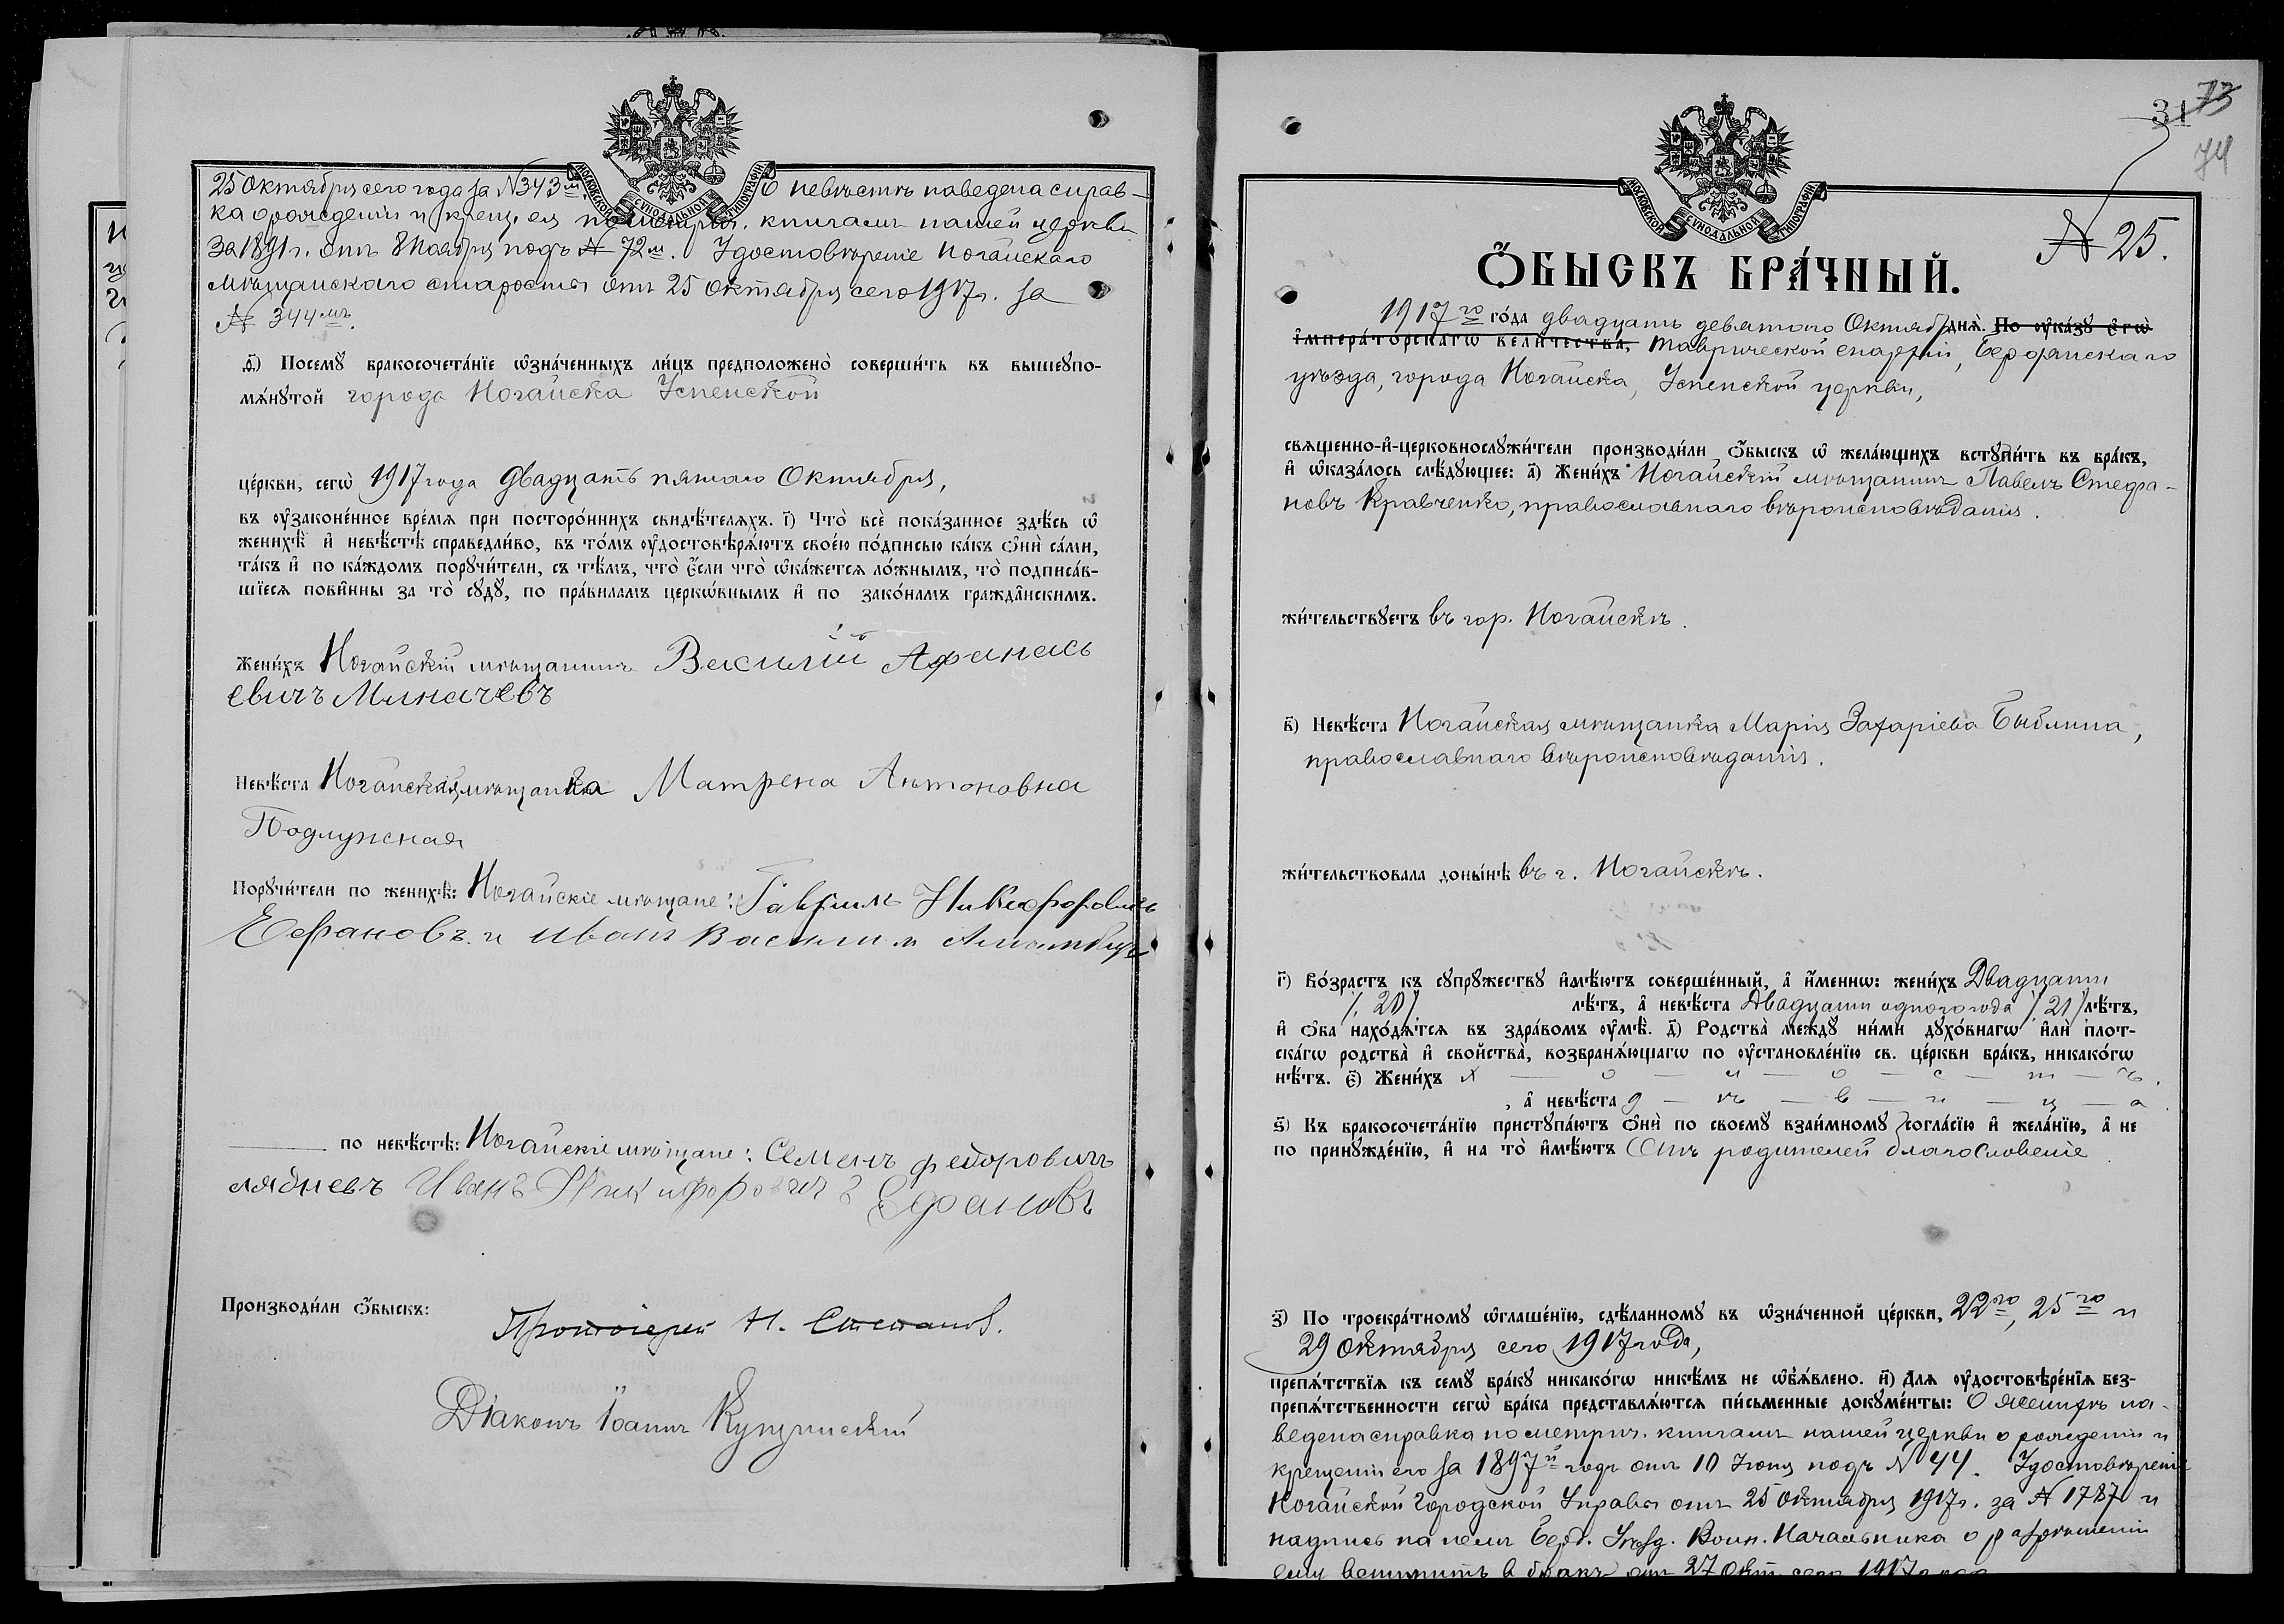 МОСКОВСКОЙ СУНОДАЛЬНОЙ ТИПОГРАФІИ
25 Октября сего года за №343м. О невѣстѣ наведена справ-
ка о рожденіи и крещ. ея по метрич. книгамъ нашей церкви
за 1891г. отъ 8 Ноября подъ № 72м. Удостовѣреніе Ногайскаго
мѣщанскаго старосты отъ 25 Октября сего 1917г. за
№ 344мъ.
ѳ҃) Посемꙋ бракосочета́нїе ѡзна́ченныхъ ли́цъ предположено̀ соверши́ть въ вышеꙋпо-
мѧ́нꙋтой города Ногайска Успенской
це́ркви, сегѡ̀ 1917 года двадцать пятаго Октября,
въ оу҆законе́нное вре́мѧ при посторо́ннихъ свидѣ́телѧхъ. і҃) Что̀ всѐ пока́занное здѣ́сь ѡ҆
женихѣ̀ и҆ невѣ́стѣ справедли́во, въ то́мъ оу҆достовѣрѧ́ютъ свое́ю по́дписью ка́къ ѻ҆нѝ са́ми,
та́къ и҆ по ка́ждомъ порꙋчи́тели, съ тѣ́мъ, что̀ є҆́сли что̀ ѡ҆ка́жетсѧ ло́жнымъ, то̀ подписа́в-
шїесѧ пови́нны за то̀ сꙋдꙋ̀, по пра́виламъ церко́внымъ и҆ по зако́намъ гражда́нскимъ.
Жени́хъ Ногайскій мѣщанинъ Василій Афанась
евичъ Миначевъ
Невѣ́ста Ногайская мѣщанка Матрена Антоновна
Подлужная
Порꙋчи́тели по женихѣ̀: Ногайскіе мѣщане: Гавриилъ Никифоровичъ
Ефановъ и Иванъ Васили
по невѣ́стѣ: Ногайскіе мѣщане: Семенъ федоровичъ
лябневъ Иванъ Никифоровичъ Ефановъ
Производи́ли ѻ҆́быскъ:
Протоіерей Н. Степановъ.
Діаконъ Іоаннъ
МОСКОВСКОЙ СУНОДАЛЬНОЙ ТИПОГРАФІИ
31 73
74
№ 25.
Ѻ҆́БЫСКЪ БРА́ЧНЫЙ.
1917го го́да двадцать девятаго Октября днѧ̀. По оу҆ка́зꙋ є҆гѡ̀
і҆мпера́торскагѡ вели́чества, Таврической епархіи, Бердянскаго
уѣзда, города Ногайска, Успенской церкви,
свѧщенно-и҆-церковнослꙋжи́тели производи́ли ѻ҆́быскъ ѡ҆ жела́ющихъ встꙋпи́ть въ бра́къ,
и҆ ѡ҆каза́лось слѣ́дꙋющее: а҃) Жени́хъ Ногайскій мѣщанинъ Павелъ Стефа-
новъ Кравченко, православнаго вѣроисповѣданія.
жи́тельствꙋетъ въ гор. Ногайскѣ.
в҃) Невѣ́ста Ногайская мѣщанка Марія Захаріева Быблина,
православнаго вѣроисповѣданія.
жи́тельствовала доны́нѣ въ г. Ногайскѣ.
г҃) Во́зрастъ къ сꙋпрꙋжествꙋ и҆мѣ́ютъ соверше́нный, а҆ и҆́менно: жени́хъ Двадцати
/.20/. лѣ́тъ, а҆ невѣ́ста двадцати одного года /.21/ лѣ́тъ,
и҆ ѻ҆́ба нахо́дѧтсѧ въ здра́вомъ оу҆мѣ̀. д҃) Родства̀ междꙋ ни́ми дꙋхо́внагѡ и҆лѝ плот-
ска́гѡ родства̀ и҆ свойства̀, возбранѧ́ющагѡ по оу҆становле́нїю св. це́ркви бра́къ, никако́гѡ
нѣ́тъ. є҃) Жени́хъ х — о — л — о — с — т — ъ.
, а҆ невѣ́ста д — ѣ — в — и — ц — а
ѕ҃) Къ бракосочета́нїю пристꙋпа́ютъ ѻ҆нѝ по своемꙋ̀ взаи́мномꙋ согла́сїю и҆ жела́нїю, а҆ не
по принꙋжде́нїю, и҆ на то̀ и҆мѣ́ютъ Отъ родителей благословеніе
з҃) По троекра́тномꙋ ѡ҆глаше́нїю, сдѣ́ланномꙋ въ ѡ҆зна́ченной це́ркви, 22го, 25го и
29 Октября сего 1917 года,
препѧ́тствїѧ къ семꙋ̀ бра́кꙋ никако́гѡ никѣ́мъ не ѡ҆бъѧ́влено. и҃) Длѧ оу҆достовѣре́нїѧ без-
препѧ́тственности сегѡ̀ бра́ка представлѧ́ютсѧ пи́сьменные докꙋме́нты: О женихѣ на-
ведена справка по метрич. книгамъ нашей церкви о рожденіи и
крещеніи его за 1897й годъ отъ 10 Іюня подъ № 44. Удостовѣреніе
Ногайской Городской Управы отъ 25 Октября 1917г. за № 1787 и
надпись на немъ Берд. Уѣзд. Воин. Начальника о разрѣшеніи
ему вступить в бракъ отъ 27 Окт. сего 1917 года